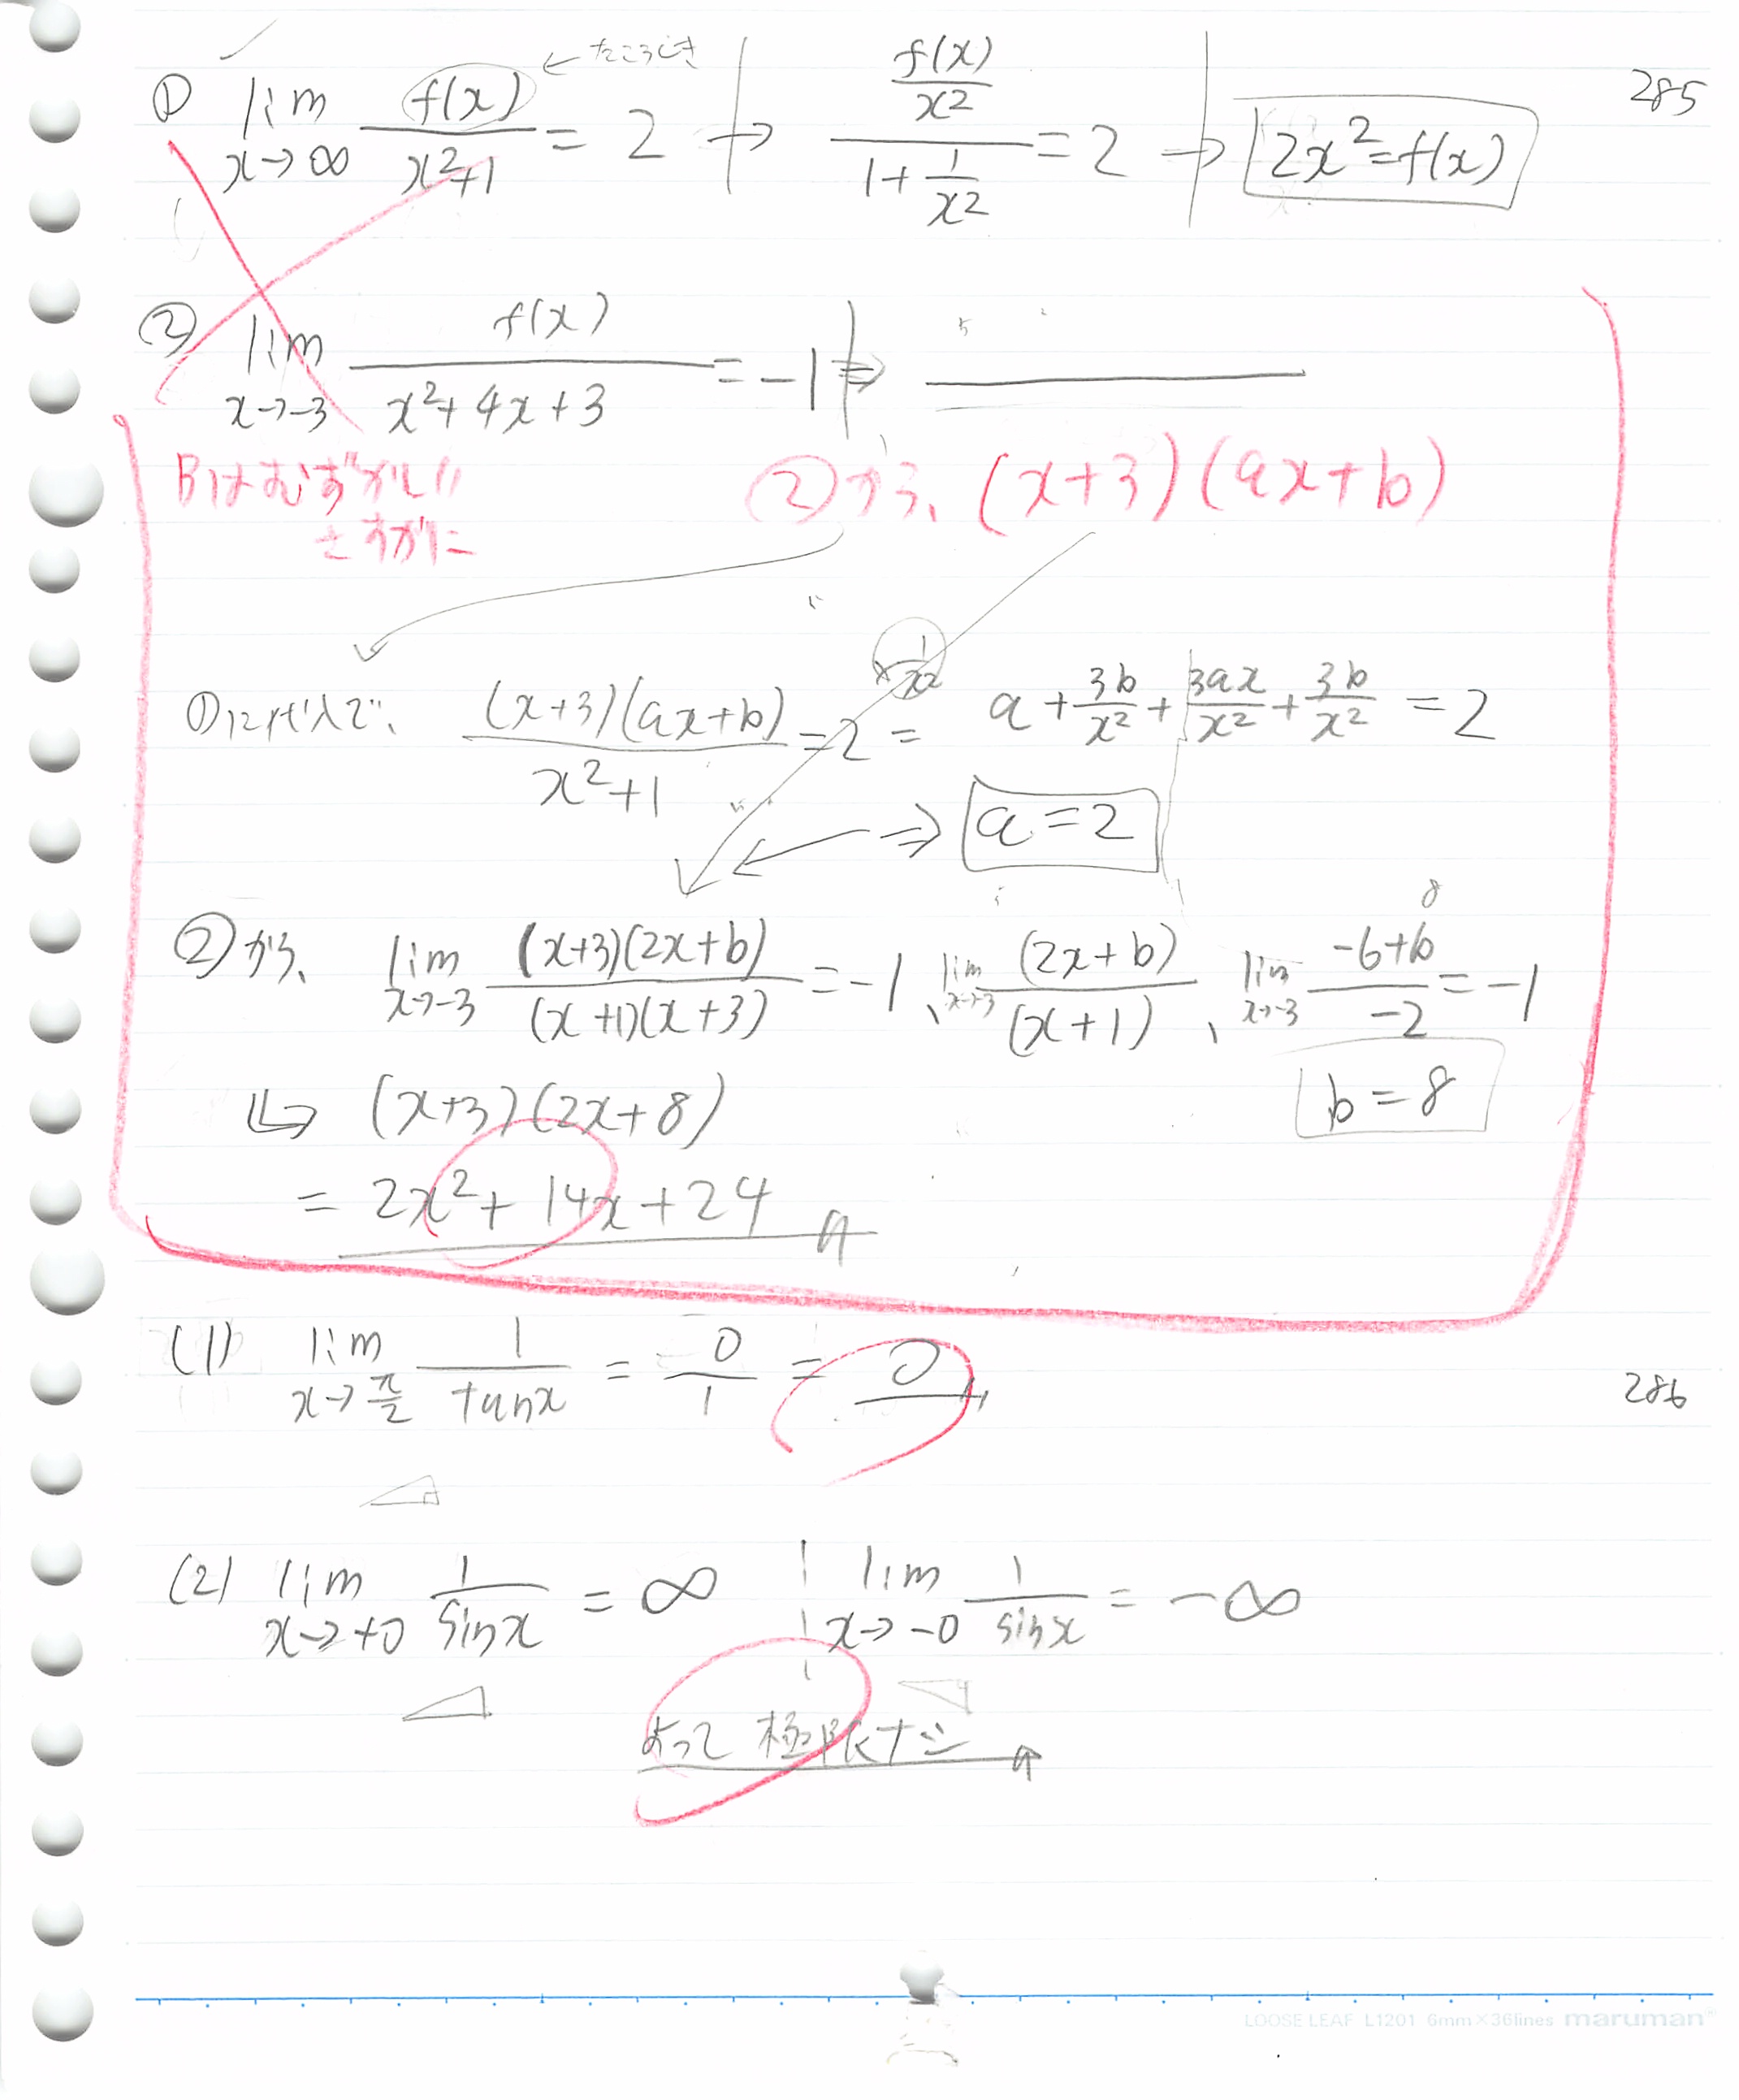 285
① lim x→∞ f(x)/(x²+1) = 2 → (f(x)/x²)/(1+1/x²) = 2 → 2x²=f(x)
←たこうしき
② lim x→-3 f(x)/(x²+4x+3) = -1 ⇒
Bはむずかしい
さすがに
②から、(x+3)(ax+b)
①に代入して、 (x+3)(ax+b)/(x²+1) = 2 = a + 3b/x² + 3ax/x² + 3b/x² = 2
⇒ a=2
②から、 lim x→-3 (x+3)(2x+b)/(x+1)(x+3) = -1、 lim x→-3 (2x+b)/(x+1)、 lim x→-3 (-6+b)/-2 = -1
8
b=8
↳ (x+3)(2x+8)
= 2x²+14x+24
286
(1) lim x→π/2 1/tanx = 0/1 = 0
(2) lim x→+0 1/sinx = ∞ lim x→-0 1/sinx = -∞
よって極限ナシ
LOOSE LEAF L1201 6mm×36lines maruman